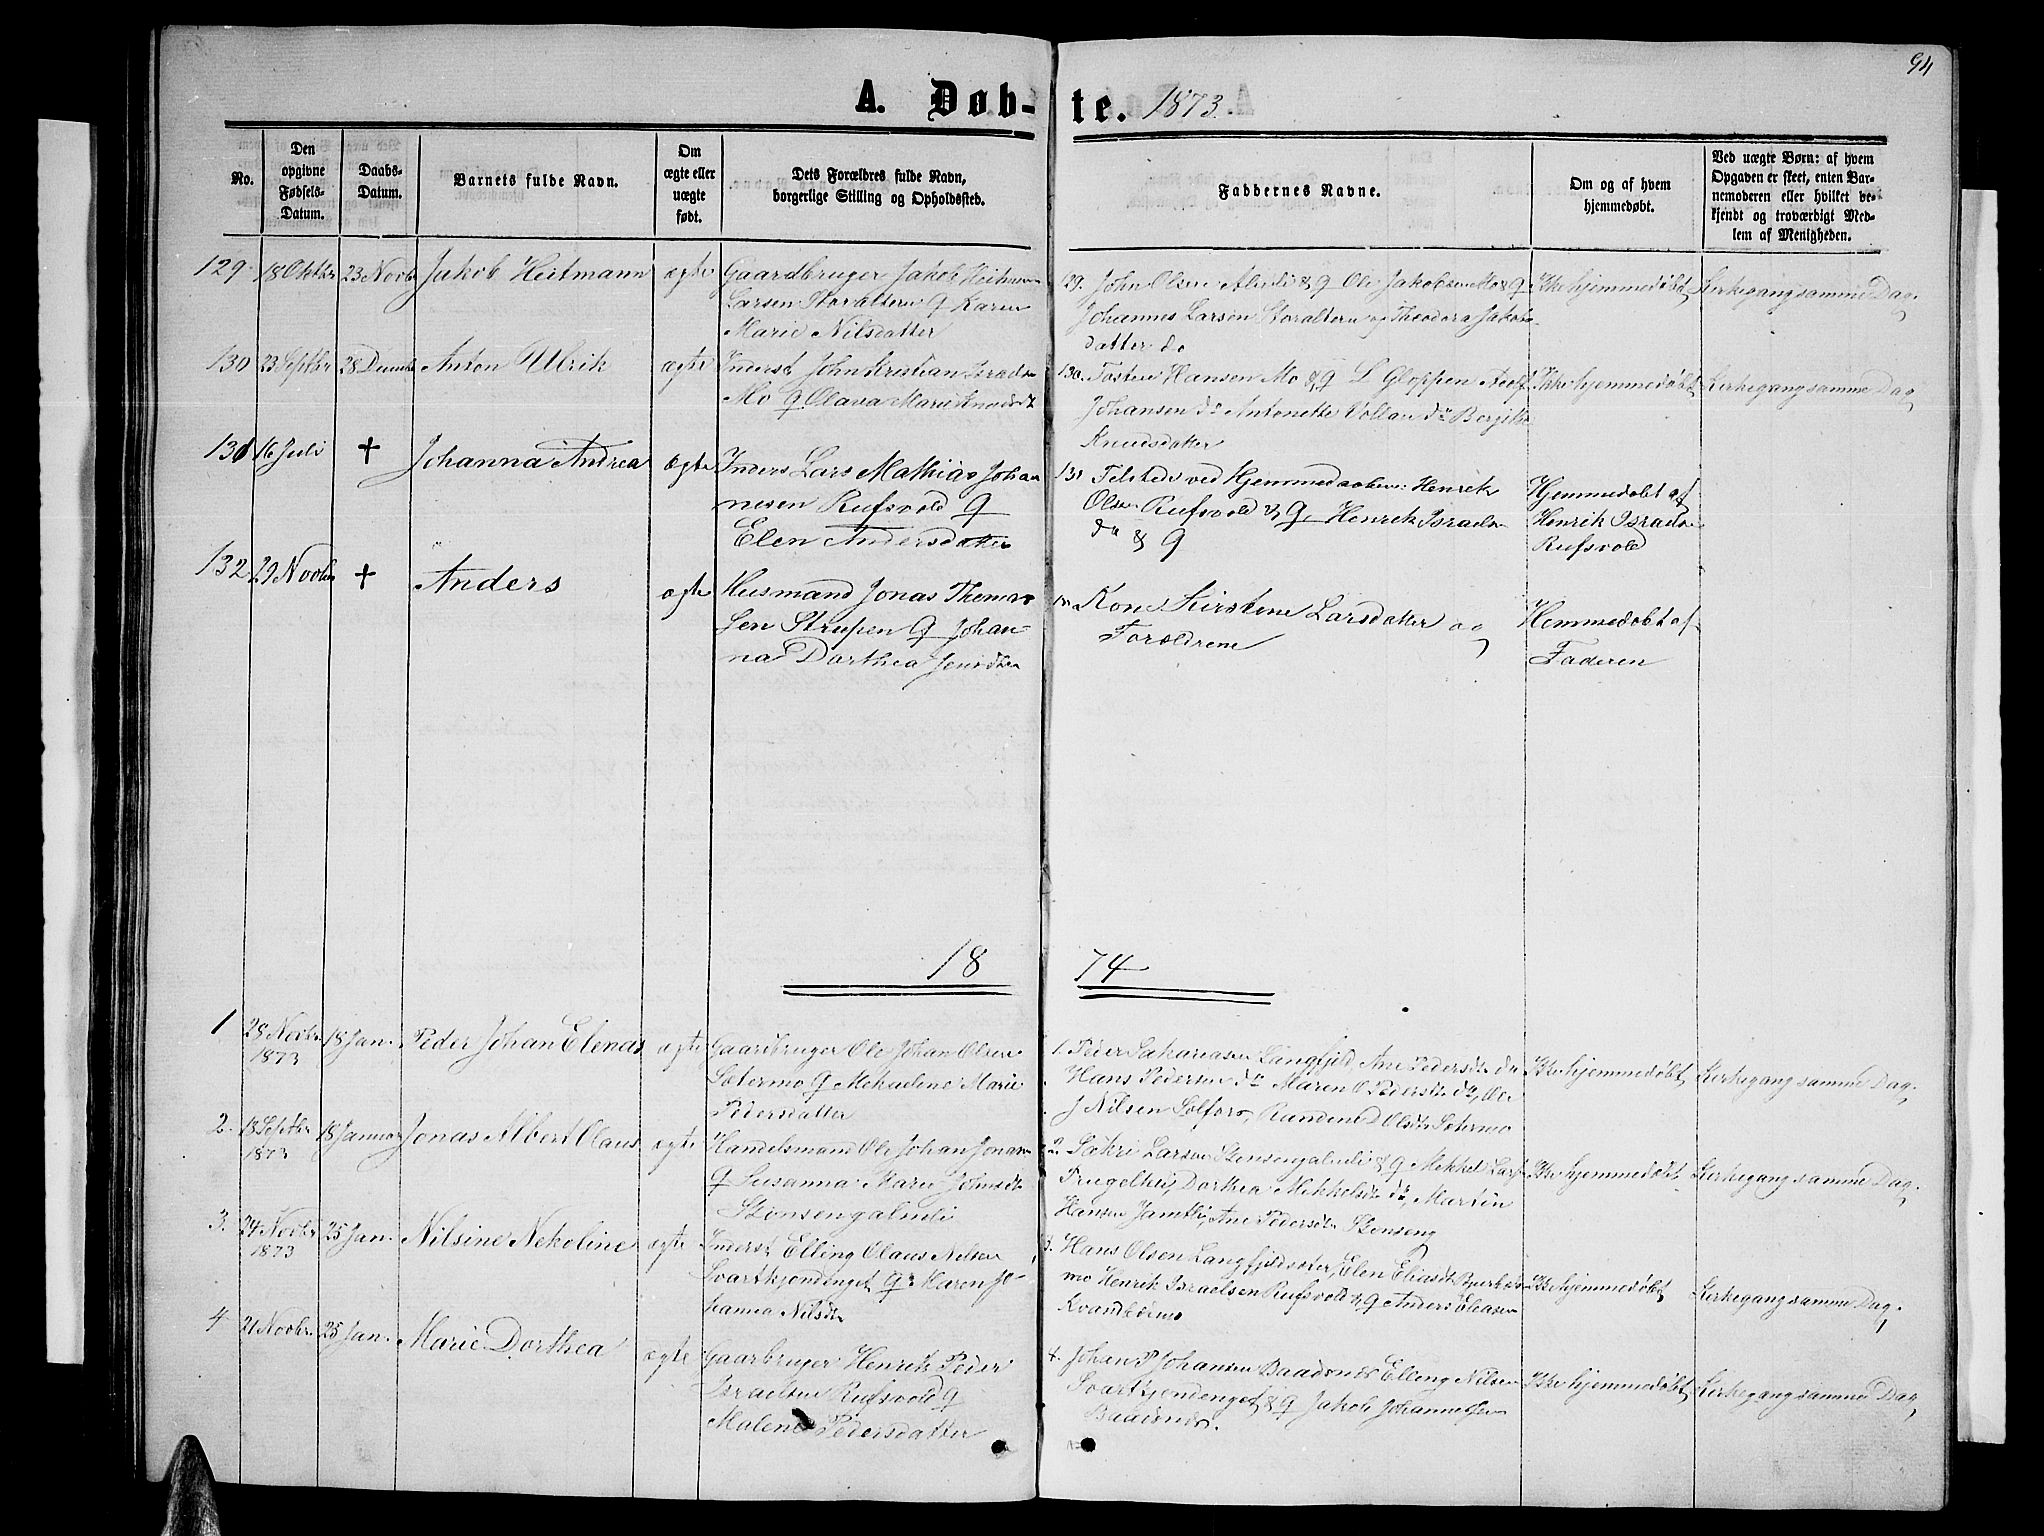 94
A. Døb-te. 1873.
No.
Den opgivne Fødsels-Datum.
Daabs-Datum.
Barnets fulde Navn.
Om ægte eller uægte født.
Dets Forældres fulde Navn, borgerlige Stilling og Opholdssted.
Faddernes Navne.
Om og af hvem hjemmedøbt.
Ved uægte Børn: af hvem Opgaven er skeet, enten Barnemoderen eller hvilket bekjendt og troværdigt Medlem af Menigheden.
129. 18 Oktbr 23 Novbr Jakob Heitmann ægte Gaardbruger Jakob Heitman
Larsen Storalteren & Karen
Marie Nilsdatter
129. John Olsen Alnli & Q Ole Jakobsen Mo & Q
Johannes Larsen Storalteren og Theodora Jakobs
datter do
Ikke hjemmedøbt Kirkegang samme Dag.
130 23 Septbr 28 Decmbr Anton Ulrik ægte Inderst John Kristian
Mo & Olava Marie
130. Hansen Mo & Q L Gloppen Adolf
Johansen do Antonette Vollan do Bergitte
Knudsdatter
Ikke hjemmedøbt Kirkegang samme Dag
131 16 Juli † Johanna Andrea ægte Inders Lars Mathias Johan
nesen Rufsvold Q
Elen Andersdatter
131 Tilstede ved Hjemmedaaben: Henrik
Olsen Rufsvold & Q, Henrik Israels
do & Q
Hjemmedøbt af
Henrik Israels
Rufsvold
132 29 Novbr † Anders ægte Husmand Jonas Thomas
sen Strupen Q Johan-
na Dorthea
Kone Kirstine Larsdatter og
Forældrene
Hemmedøbt af
Faderen
18 74
1 28 Novbr 1873 18 Jan. Peder Johan Elenas ægte Gaardbruger Ole Johan Olsen
Sætermo Q Mekaline Marie
Pedersdatter
1. Peder Sakariasen Langfjeld, Ane Pedersdt do
Hans Pedersen do Maren O Pedersdt do, Ole
J Nilsen Solfors, Olsdt Sætermo
Ikke hjemmedøbt, Kirkegang samme Dag,
2. 18 Septbr 1873 18 Januar Jonas Albert Olaus ægte Handelsmand Ole Johan Jonasen
Q Susanna Marie Johnsdt
Stensengalnli
2. Sakri Larsen Stensengalnli & Q Mekkel Lars
Dorthea Mekkelsdt do, Martin
Hansen Jamtli, Ane Pedersdt Stenseng
Ikke hjemmedøbt Kirkegang samme Dag.
3. 24 Novbr 1873 25 Jan. Nilsine Nekoline ægte Inderst Elling Olaus Nilsen
Svartkjendenget Q Maren Jo-
hanna Nilsdt
3. Hans Olsen Langfjeldsæter, Elen Eliasdt
mo Henrik Israelsen Rufsvold & Q Anders Eliasen
Ikke hjemmedøbt, Kirkegang samme Dag,
4 21 Novbr. 25 Jan. Marie Dorthea ægte Gaarbruger Henrik Peder
Israelsen Rufsvold Q
Malene Pedersdatter
4. Johan P Johansen Baadsnes Elling Nilsen
Svartkjendenget & Q Jakob Johannesen
Baadsnes.
Ikke hjemmedøbt, Kirkegang samme Dag,